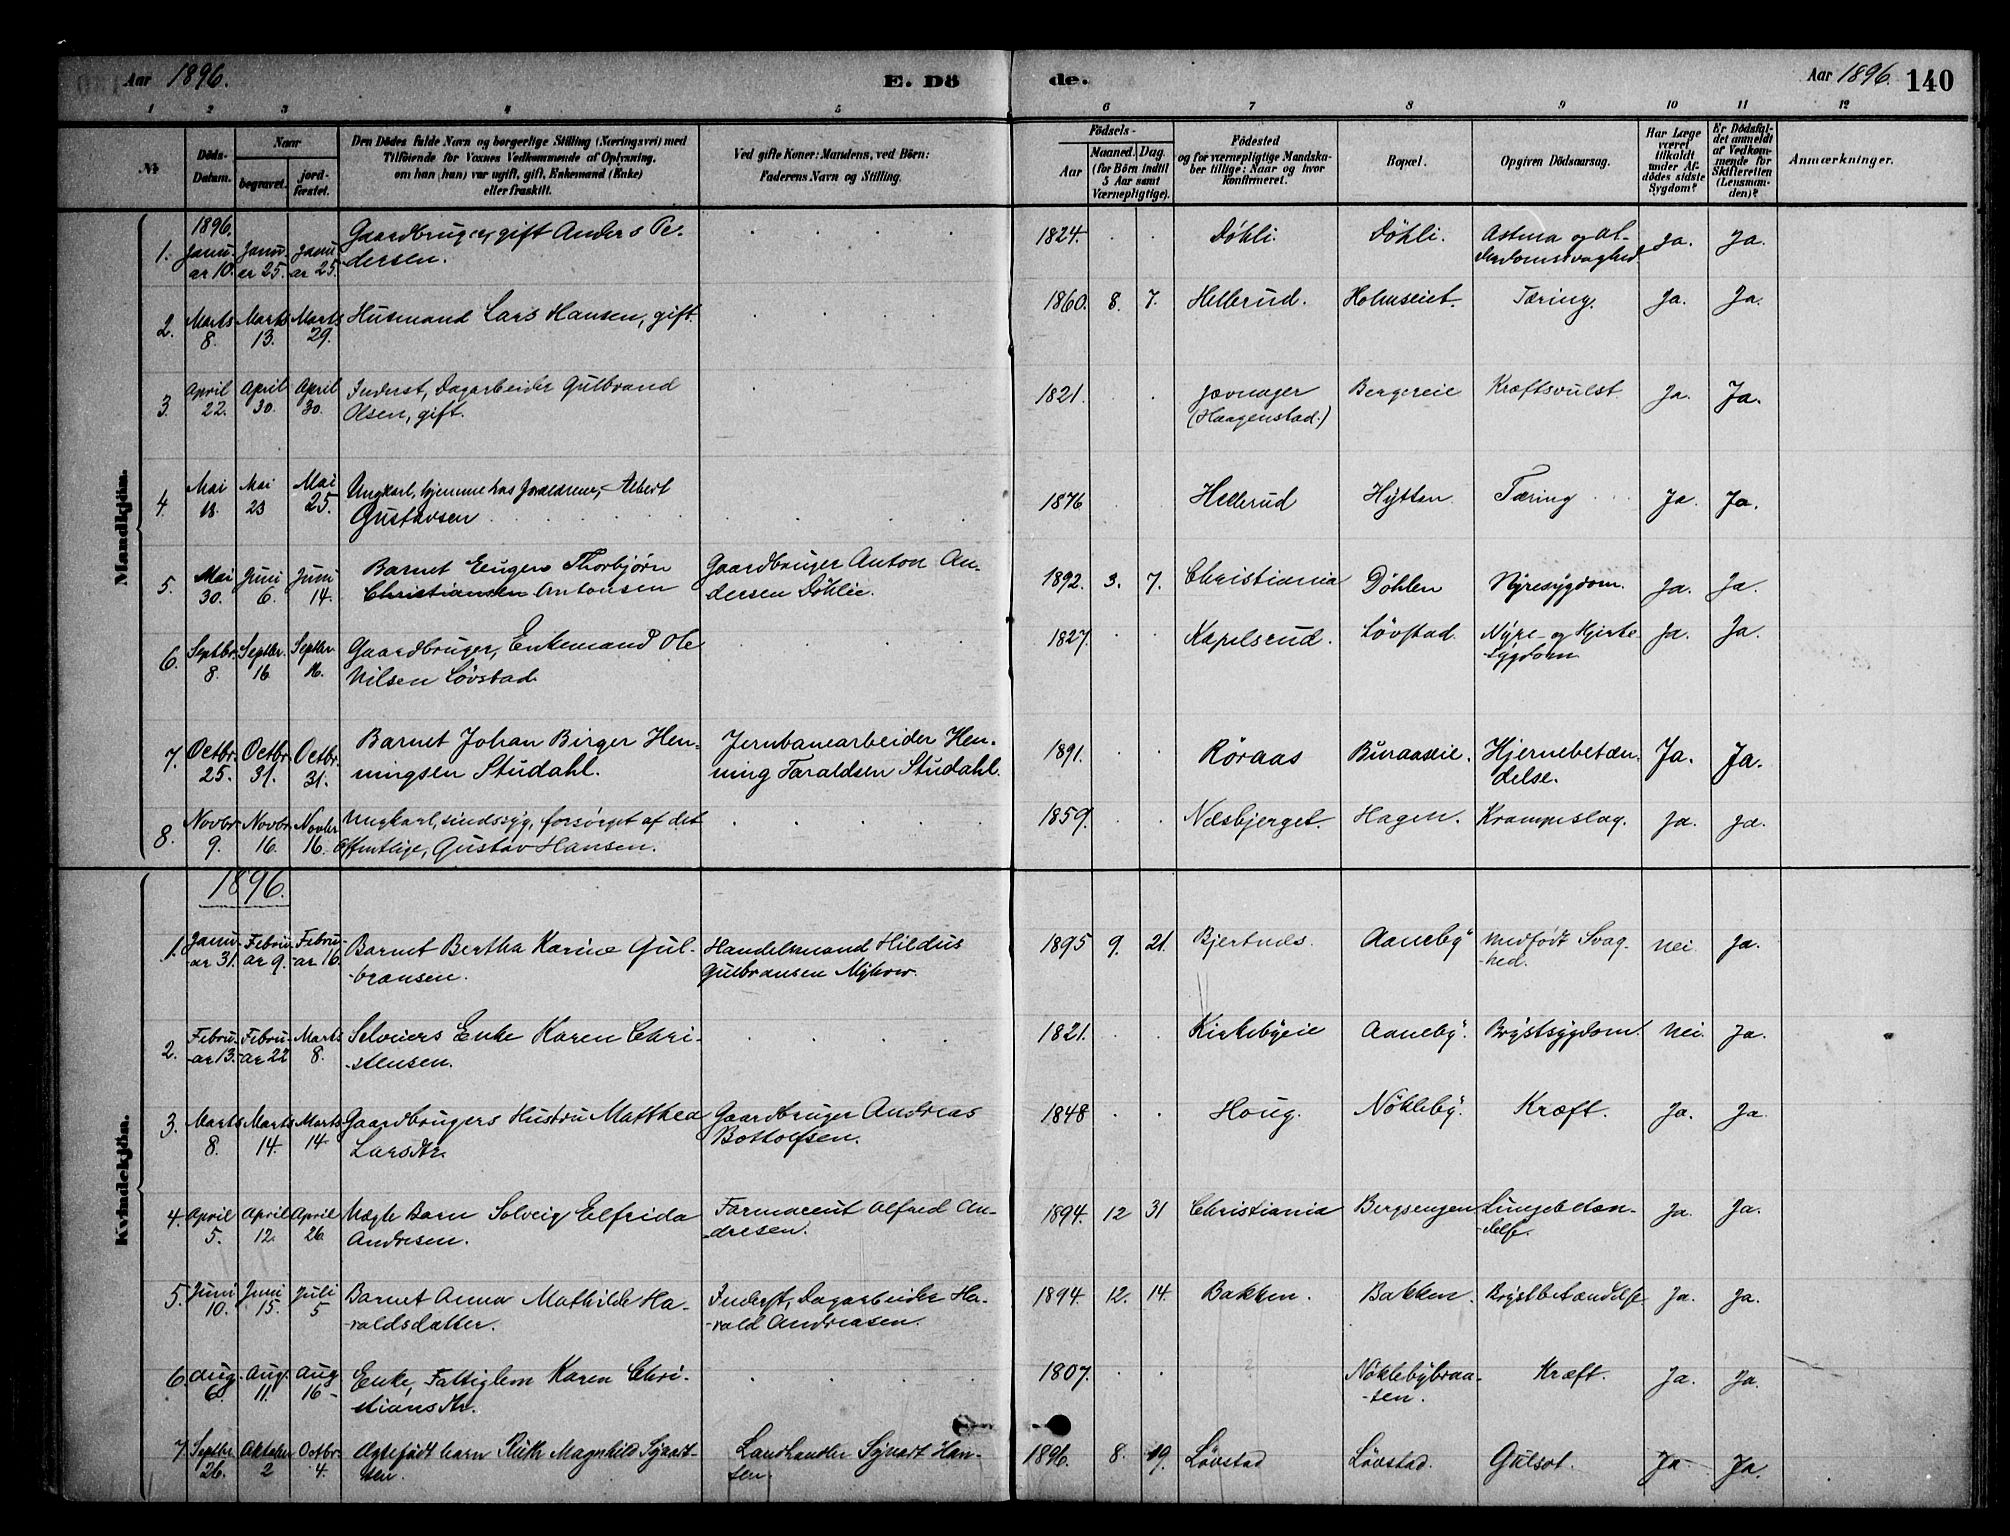 Aar 1896. E. Dö de. Aar 1896. 140
1 2 3 4 5 6 7 8 9 10 11 12
№ Döds-Datum. Naar begravet. jordfæstet. Den Dödes fulde Navn og borgerlige Stilling (Næringsvei) med Tilföiende for Voxnes Vedkommende af Oplysning, om han (hun) var ugift, gift, Enkemand (Enke) eller fraskilt. Ved gifte Koner: Mandens, ved Börn: Faderens Navn og Stilling. Födsels- Aar Maaned. Dag. (for Börn indtil 5 Aar samt Værnepligtige). Födested og for værnepligtige Mandskaber tillige: Naar og hvor Konfirmeret. Bopæl. Opgiven Dödsaarsag. Har Læge været tilkaldt under Afdödes sidste Sygdom? Er Dödsfaldet anmeldt af Vedkommende for Skifteretten (Lensmanden)? Anmærkninger.
Mandkjön.
1896.
1. Januar 10. Januer 25. Januar 25. Gaardbruger, gift Anders Pedersen. 1824. Döhli. Döhli. Astma og Alderdomssvaghed Ja. Ja.
2. Marts 8. Marts 13. Marts 29. Husmand Lars Hansen, gift. 1860. 8. 7. Hellerud. Holmseiet. Tæring. Ja. Ja.
3. April 22. April 30. April 30. Inderst, Dagarbeider Gulbrand Olsen, gift. 1821. Jevnager (Haagenstad.) Bergereie Kræftsvulst Ja. Ja.
4. Mai 18. Mai 23 Mai 25. Ungkarl, hjemme hos Forældrene, Albert Gustavsen 1876 Hellerud Hytten Tæring Ja. Ja.
5. Mai 30. Juni 6. Juni 14. Barnet Eugen Thorbjørn Christiansen Antonsen Gaardbruger Anton Andersen Döhlie. 1892. 3. 7. Christiania Döhlen Nyresygdom. Ja. Ja.
6. Septbr. 8. Septbr. 16. Septbr. 16. Gaardbruger, Enkemand Ole Nilsen Lövstad. 1827. Kapelsrud. Lövstad. Nyre- og Hjertesygdom Ja. Ja.
7. Octbr. 25. Octbr. 31. Octbr. 31. Barnet Johan Birger Henningsen Studahl. Jernbanearbeider Henning Taraldsen Studahl. 1891. Röraas Buraaseie. Hjernebetændelse. Ja. Ja.
8. Novbr. 9. Novbr. 16. Novbr. 16. Ungkarl, sindssyg, forsörget af det Offentlige, Gustav Hansen. 1859. Næsbjerget. Hagen. Krampeslag. Ja. Ja.
Kvindekjön.
1896.
1. Januar 31. Februar 9. Februar 16. Barnet Bertha Karine Gulbransen. Handelsmand Hildus Gulbransen Myhrer. 1895 9. 21. Bjertnes. Aaneby Medfödt Svaghed. Nei. Ja.
2. Februar 13. Februar 22 Marts 8. Selveiers Enke Karen Christensen. 1821. Kirkebyeie Aaneby. Brystsygdom. Nei. Ja.
3. Marts 8. Marts 14. Marts 14 Gaardbrugers Hustru Matthea Larsdtr. Gaardbruger Andreas Bottolfsen. 1848 Houg. Nökleby. Kræft. Ja. Ja.
4. April 5. April 12. April 26. Uægte Barn Solveig Elfrida Andresen. Farmaceut Alfred Andresen. 1894. 12 31 Christiania Bergsengen Lungebetændelse. Ja. Ja.
5. Juni 10. Juni 15. Juli 5 Barnet Anna Mathilde Haraldsdatter. Inderst, Dagarbeider Harald Andreasen. 1894. 12. 14. Bakken. Bakken. Brystbetændelse Ja. Ja.
6. Aug. 6. Aug. 11. Aug 16 Enke, Fattiglem Karen Christiansdtr. 1807. Nöklebybraasen. Kræft. Ja. Ja.
7. Septbr. 26. Oktober 2 Octbr. 4. Ægtefödt barn Ruth Magnhild Syvartsen. Landhandler Syvart Hansen 1896. 8. 19. Lövstad Lövstad. Gulsot. Ja Ja.